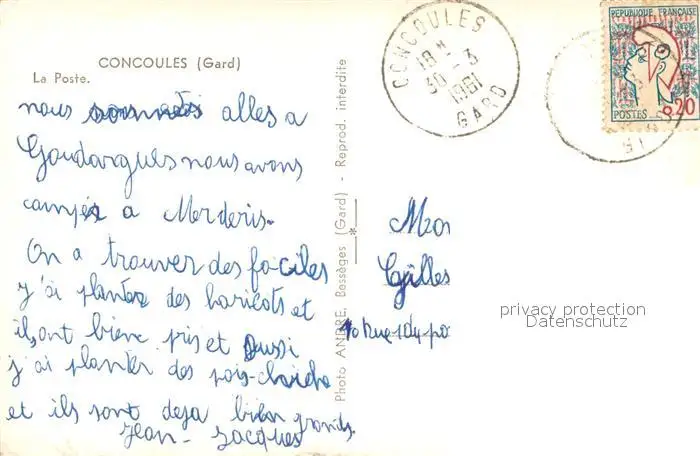 CONCOULES (Gard)
La Poste.
nous sommes alles a
Goudargues nous avons
camper a
On a trouver des fociles
j'ai planter des haricots et
ils ont bien pris et aussi
j'ai planter des pois-chiche
et ils sont deja bien grands.
Jean-Jacques
Photo ANDRE, Bessèges (Gard) - Reprod. interdite
CONCOULES
18 H
30 - 3
1961
GARD
REPUBLIQUE FRANÇAISE
POSTES 0,20
Mon
Gilles
privacy protection
Datenschutz